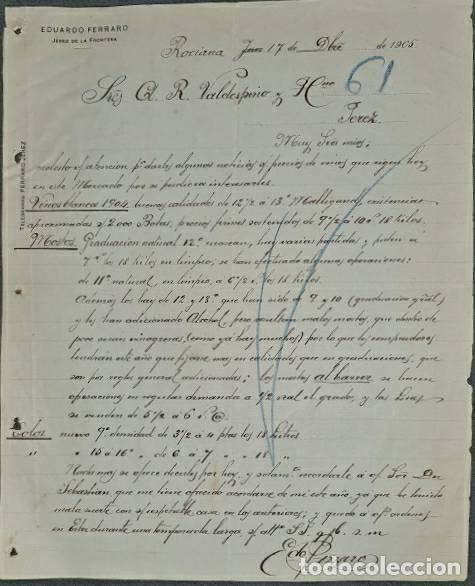 EDUARDO FERRARO
JEREZ DE LA FRONTERA
Rociana Jerez 17 de Dbre de 1905
61
Srés A. R. Valdespino y Hno
Jerez
Muy Srés mios:
molesto sf atención pª darles algunas noticias y precios de vinos que rigen hoy
en este Mercado por si pudiera interesarles.
Vinos blancos 1904, buenas calidades de 12 1/2 á 13º Malligand, existencias
aproximadas s/ 2000 Botas, precios firmes sostenidos de 9 1/2 á 10 18 kilos.
Mostos. Graduación natural 12º escasean, hay varias partidas y piden á
7 los 18 kilos en limpio; se han efectuado algunas operaciones:
de 11º natural, en limpio, á 6 1/2 los 18 kilos.
Ademas los hay de 12 y 13º que han sido de 9 y 10 (graduación
y les han adicionado Alcohol pero resultan malos mostos, que dentro de
poco seran vinagreras, (como ya hay muchos) por lo que los compradores
tendrán este año que fijarse mas en calidades que en graduaciones, que
son por regla general adicionadas; los mostos al barrer se hacen
operaciones en regular demanda á 1/2 real el grado, y las
se venden de 5 1/2 á 6
Color nuevo 9º densidad de 3 1/2 á 4 ptas los 18 litros
" " 15 á 16º " de 6 á 7 " " 18 "
Nada mas se ofrece decirles por hoy, y solamte recordarle á sf Sor Dn
Sebastian que me tiene ofrecido acordarse de mi este año, ya que he tenido
mala suerte con sf respetable casa en los anteriores; y quedo á sf ordenes
en Esta durante una temporada larga, sf attº S.S. q. b. s. m
Edo Ferraro
TELEGRAMAS FERRARO-JEREZ
todocoleccion.net
todocoleccion.net